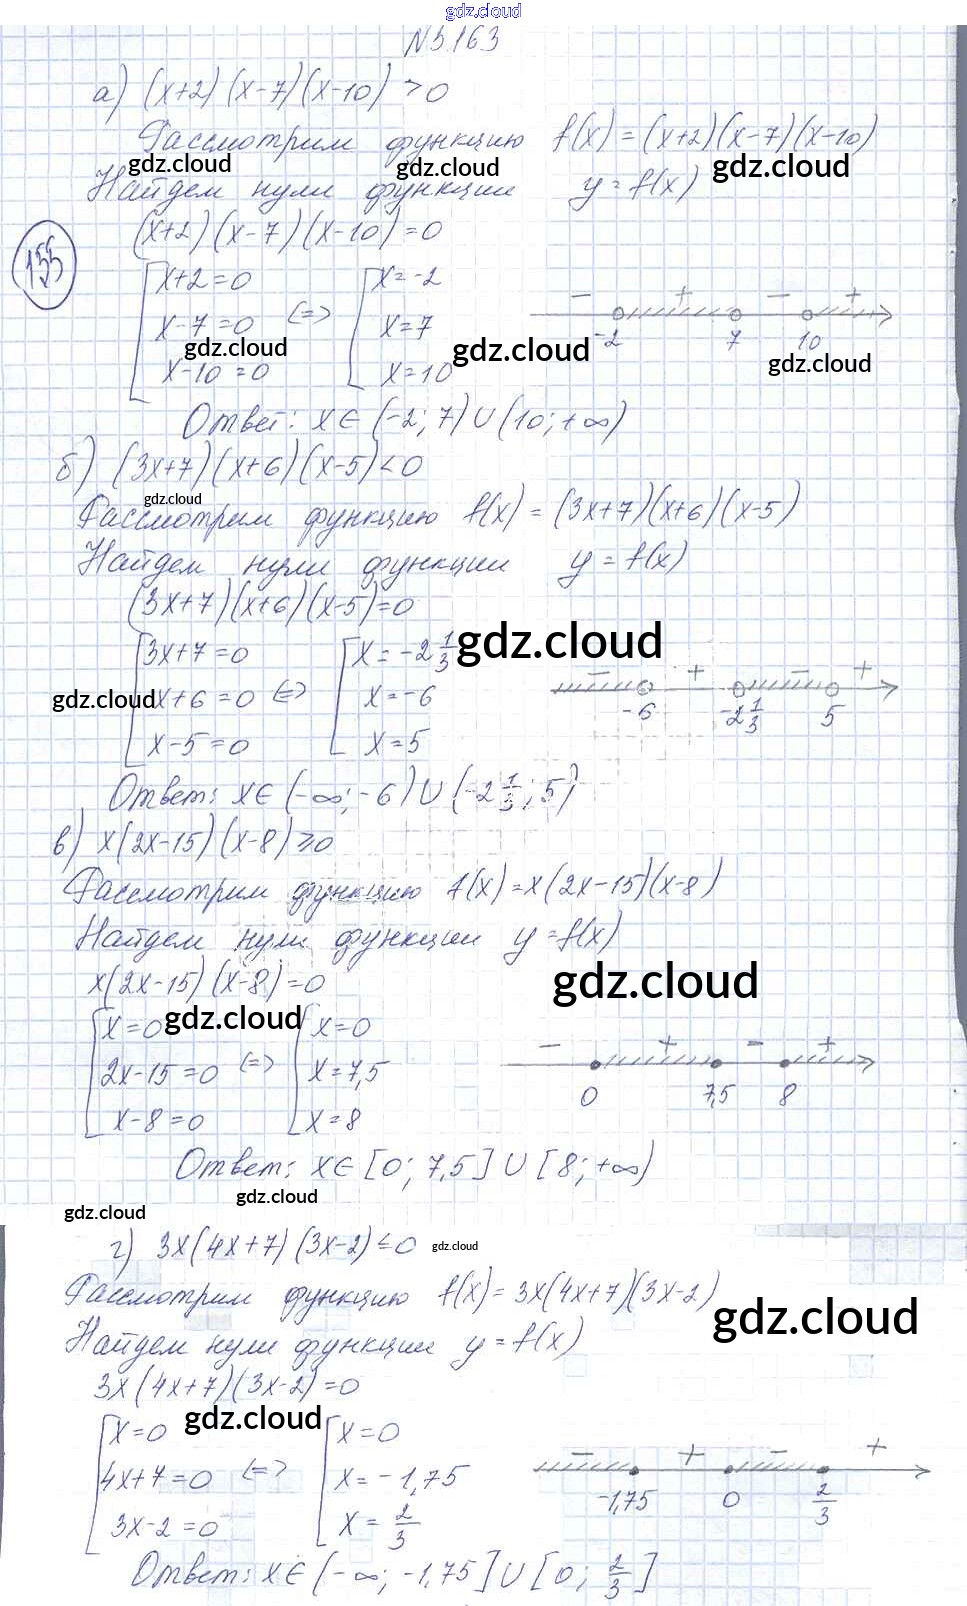 gdz.cloud
N 5.163
а) (x+2)(x-7)(x-10) > 0
Рассмотрим функцию f(x) = (x+2)(x-7)(x-10)
gdz.cloud gdz.cloud gdz.cloud
Найдем нули функции y = f(x)
(x+2)(x-7)(x-10) = 0
155
x+2=0 x=-2
x-7=0 <=> x=7
x-10=0 x=10
- + - +
-2 7 10
gdz.cloud gdz.cloud gdz.cloud
Ответ: x∈(-2; 7)∪(10; +∞)
б) (3x+7)(x+6)(x-5) < 0
gdz.cloud
Рассмотрим функцию f(x) = (3x+7)(x+6)(x-5)
Найдем нули функции y = f(x)
(3x+7)(x+6)(x-5)=0
3x+7=0 x=-2 1/3
gdz.cloud
x+6=0 <=> x=-6
gdz.cloud
x-5=0 x=5
- + - +
-6 -2 1/3 5
Ответ: x∈(-∞; -6)∪(-2 1/3; 5)
в) x(2x-15)(x-8) ≥ 0
Рассмотрим функцию f(x)=x(2x-15)(x-8)
Найдем нули функции y=f(x)
x(2x-15)(x-8)=0
gdz.cloud
x=0 x=0
gdz.cloud
2x-15=0 <=> x=7,5
x-8=0 x=8
- + - +
0 7,5 8
Ответ: x∈[0; 7,5]∪[8; +∞)
gdz.cloud gdz.cloud
г) 3x(4x+7)(3x-2) ≤ 0
gdz.cloud
Рассмотрим функцию f(x)=3x(4x+7)(3x-2)
gdz.cloud
Найдем нули функции y=f(x)
3x(4x+7)(3x-2)=0
gdz.cloud
x=0 x=0
4x+7=0 <=> x=-1,75
3x-2=0 x=2/3
- + - +
-1,75 0 2/3
Ответ: x∈(-∞; -1,75]∪[0; 2/3]